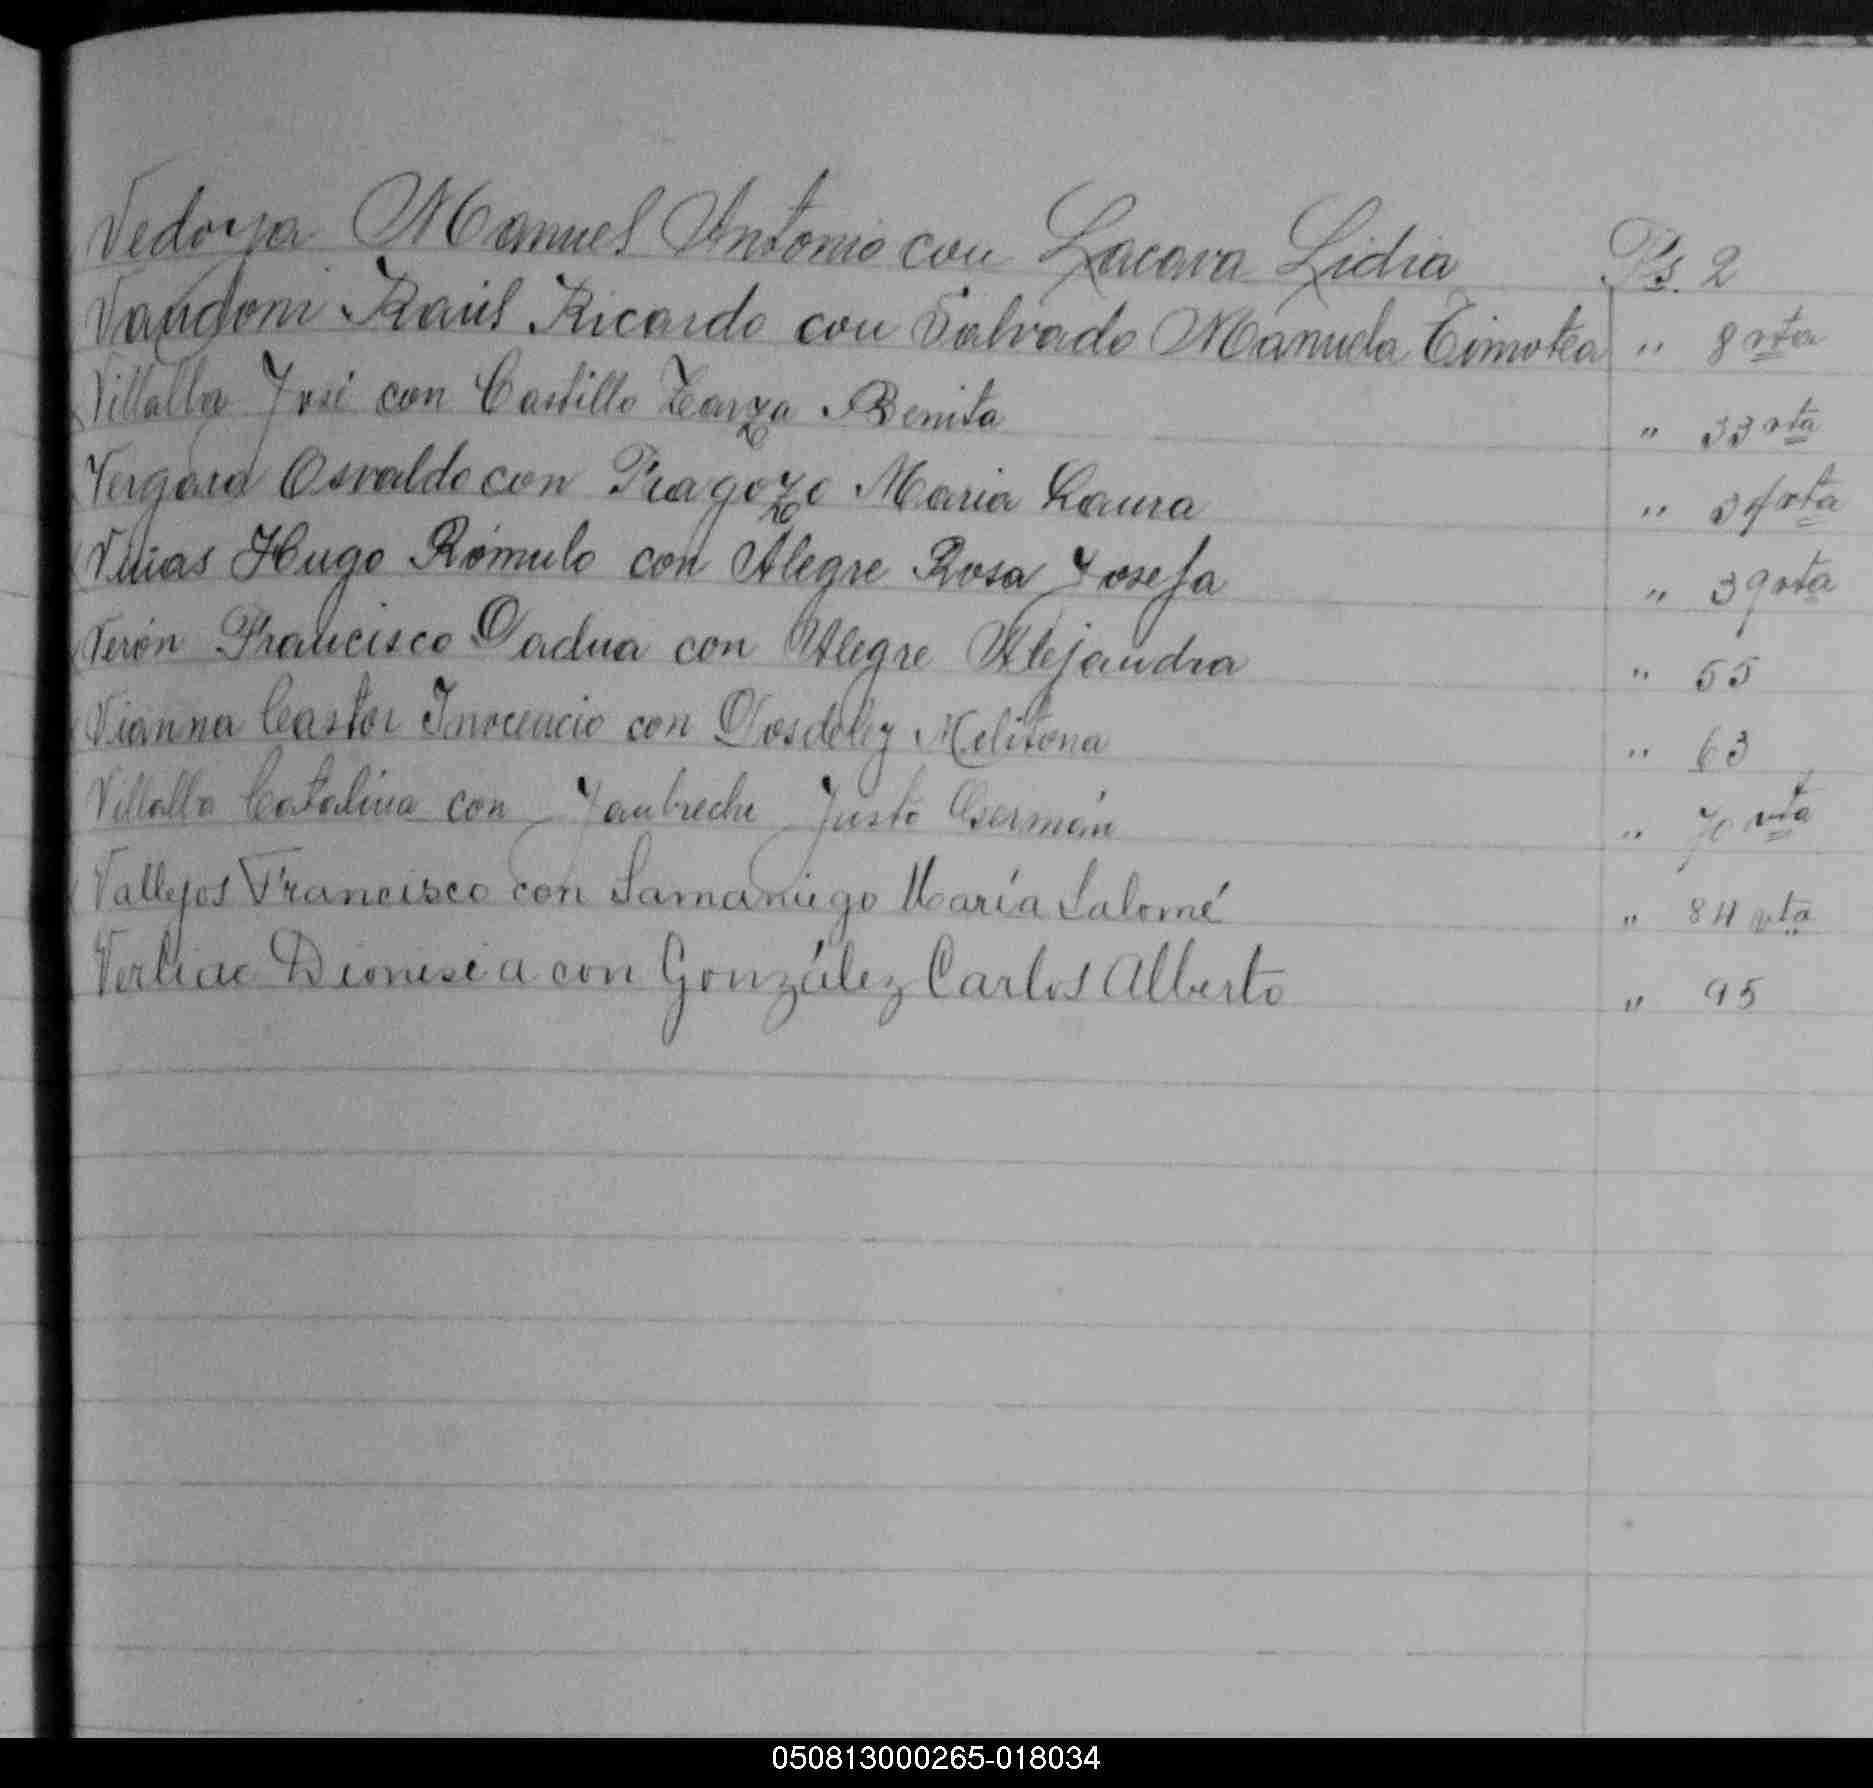 Vedoya Manuel Antonio con Lacava Lidia Ps. 2
Vandoni Raúl Ricardo con Salvado Manuela Timotea " 8 vta
Villalba José con Castillo Zarza Benita " 33 vta
Vergara Osvaldo con Fragozo Maria Laura " vta
Viñas Hugo Rómulo con Alegre Rosa Josefa " 39 vta
Verón Francisco Padua con Alegre Alejandra " 55
Vianna Castor Inocencio con Melitona " 63
Villalba Catalina con Justo Germán " 70 vta
Vallejos Francisco con Samaniego María Salomé " 84 vta
Verliac Dionisia con González Carlos Alberto " 95
050813000265-018034